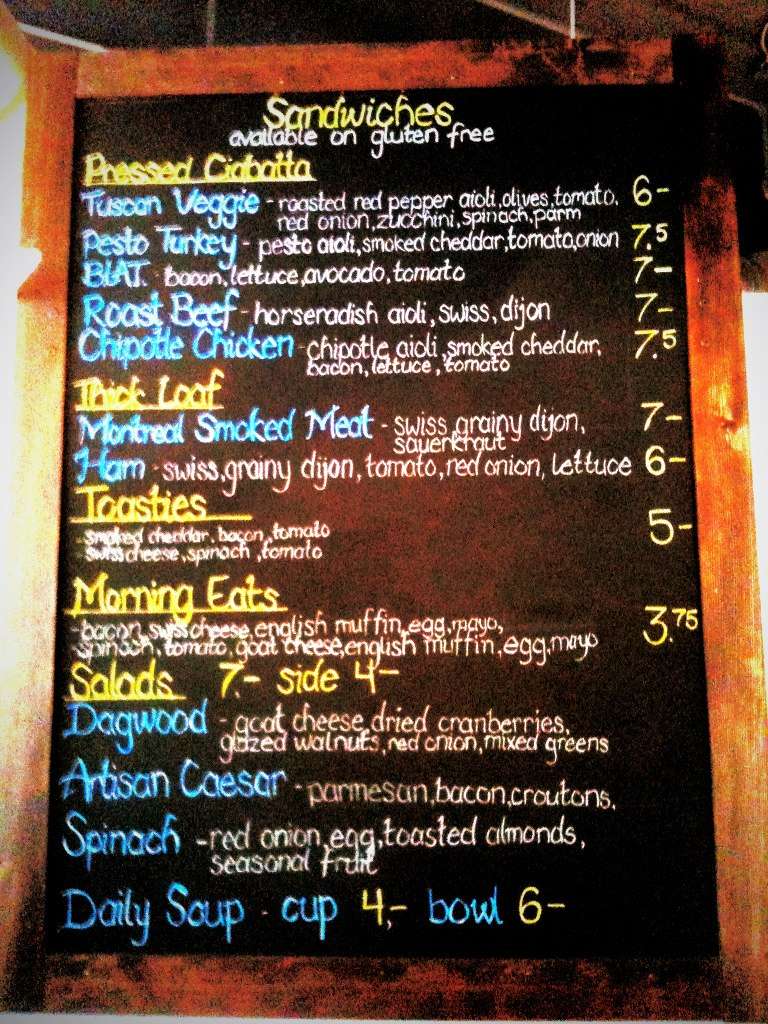 Sandwiches
available on gluten free
Pressed Ciabatta
Tuscan Veggie - roasted red pepper aioli, olives, tomato, 6-
red onion, zucchini, spinach, parm
Pesto Turkey - pesto aioli, smoked cheddar, tomato, onion 7.5
BLAT. - bacon, lettuce, avocado, tomato 7-
Roast Beef - horseradish aioli, swiss, dijon 7-
Chipotle Chicken - chipotle aioli, smoked cheddar, 7.5
bacon, lettuce, tomato
Thick Loaf
Montreal Smoked Meat - swiss, grainy dijon, 7-
sauerkraut
Ham - swiss, grainy dijon, tomato, red onion, lettuce 6-
Toasties
- smoked cheddar, bacon, tomato 5-
- swiss cheese, spinach, tomato
Morning Eats
- bacon, swiss cheese, english muffin, egg, mayo, 3.75
- spinach, tomato, goat cheese, english muffin, egg, mayo
Salads 7.- side 4-
Dagwood - goat cheese, dried cranberries,
glazed walnuts, red onion, mixed greens
Artisan Caesar - parmesan, bacon, croutons.
Spinach - red onion, egg, toasted almonds,
seasonal fruit
Daily Soup - cup 4.- bowl 6-